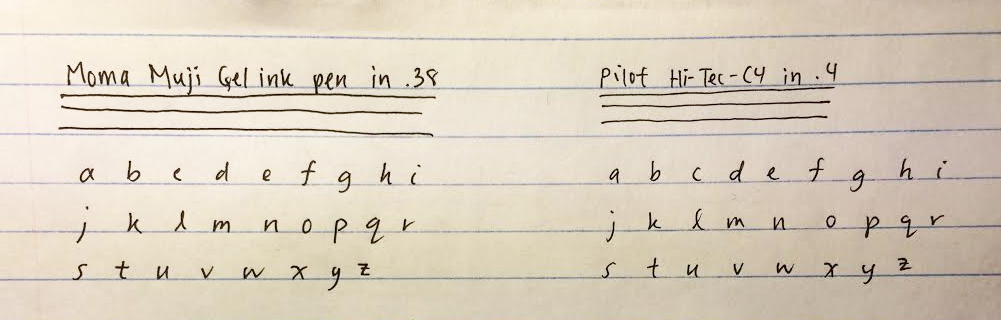 Moma Muji Gel ink pen in .38
a b c d e f g h i
j k l m n o p q r
s t u v w x y z
Pilot Hi-Tec-C4 in .4
a b c d e f g h i
j k l m n o p q r
s t u v w x y z